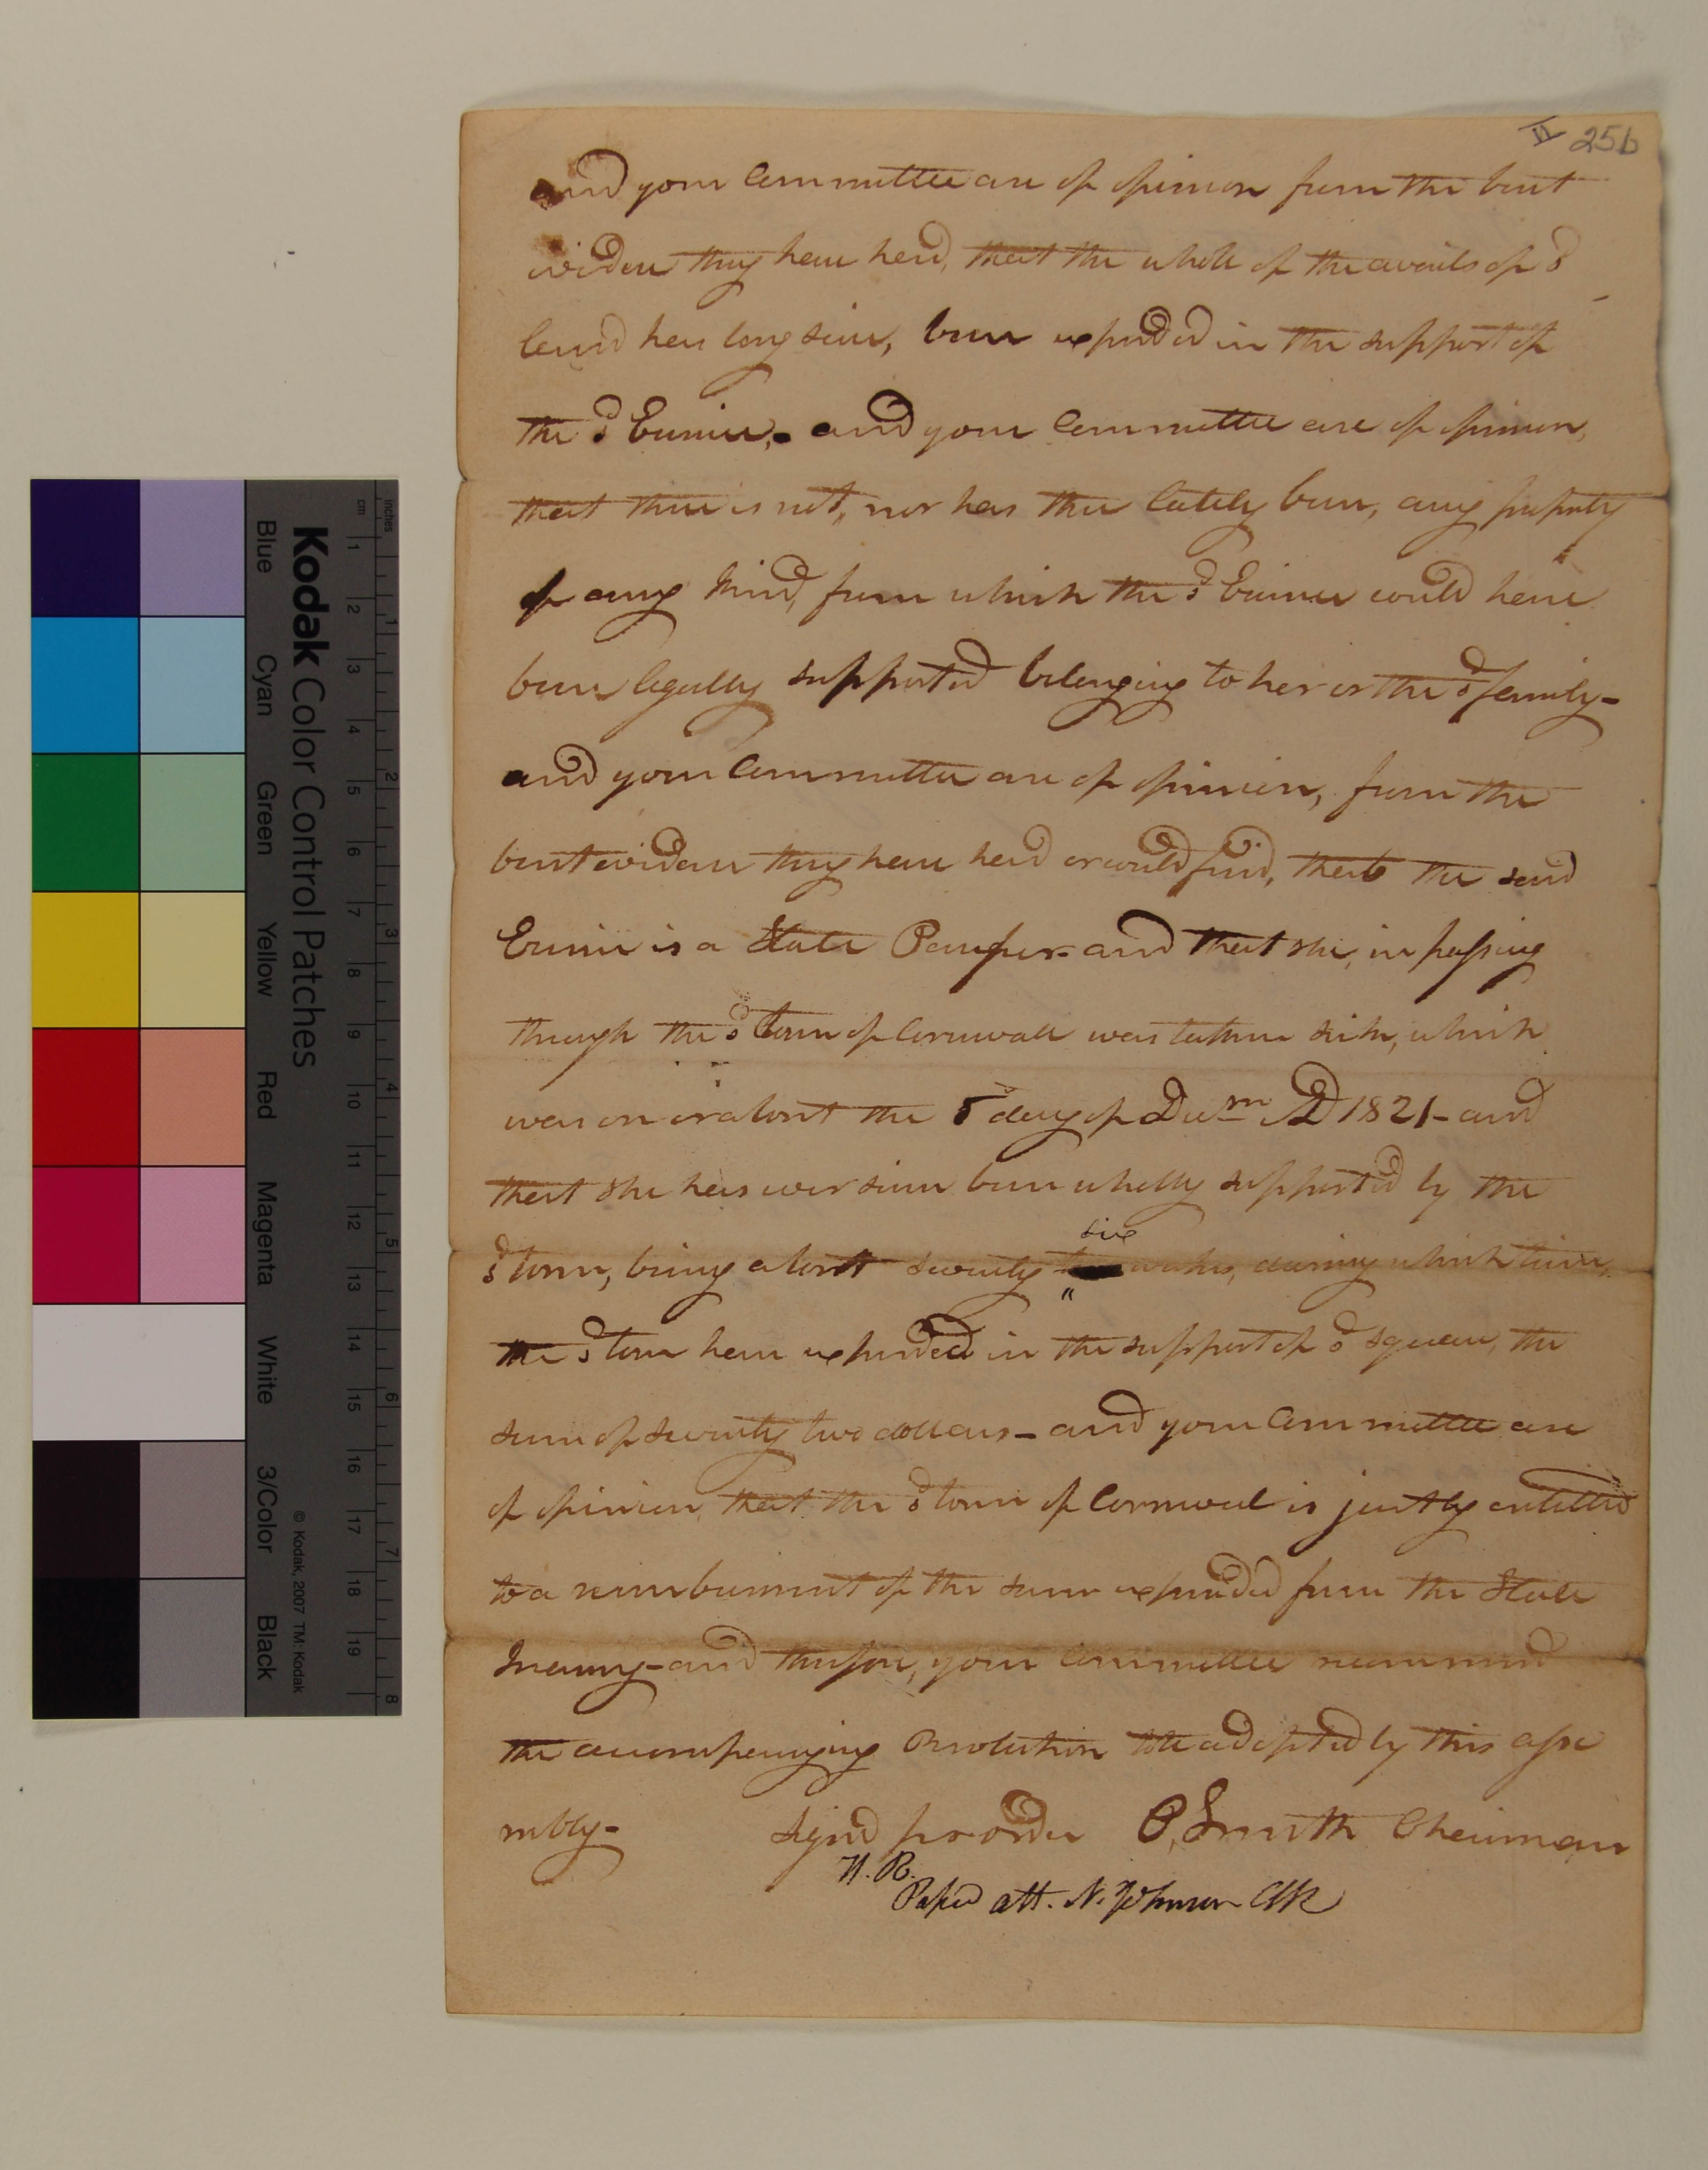 II 25b
and your Committee are of opinion from the best
evidence they have heard, that the whole of the avails of sd
land has long since, been expended in the support of
the sd Eunice,- and your Committee are of opinion,
that there is not, nor has there lately been, any property
of any kind, from which the sd Eunice could have
been legally supported belonging to her or the sd family-
and your Committee are of opinion, from the
best evidence they have heard or could find, that the said
Eunice is a State Pauper- and that she, in passing
through the sd town of Cornwall was taken sick, which
was on or about the 8 day of Decm AD 1821- and
that she has ever since been wholly supported by the
six
sd town, being about seventy weeks, during which time,
the sd town have expended in the support of sd squaw, the
sum of seventy two dollars- and your Committee are
of opinion, that the sd town of Cornwall is justly entitled
to a reimbursment of the sum expended from the State
Treasury- and therefore, your Committee recommend
the accompanying Resolution to be adopted by this asse
mbly- Signd pr order C, Smith Chairman
H. R.
Passed att. N. Johnson Clk
Kodak Color Control Patches
© Kodak, 2007 TM: Kodak
Blue Cyan Green Yellow Red Magenta White 3/Color Black
cm 1 2 3 4 5 6 7 8 9 10 11 12 13 14 15 16 17 18 19
inches 1 2 3 4 5 6 7 8